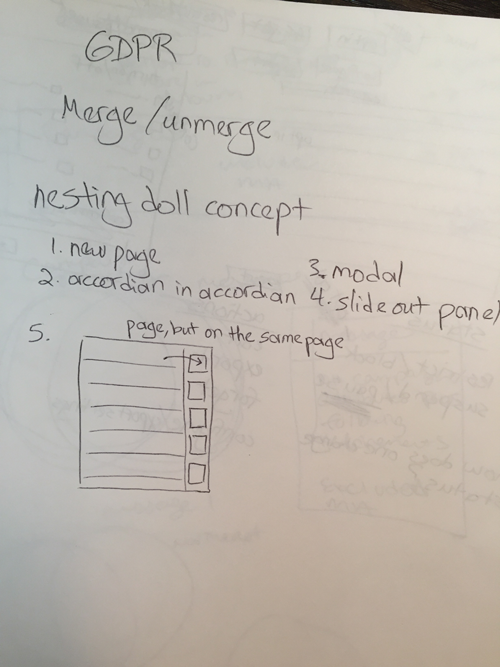 GDPR
Merge/unmerge
nesting doll concept
1. new page
2. accordian in accordian
3. modal
4. slide out panel
5. page, but on the same page